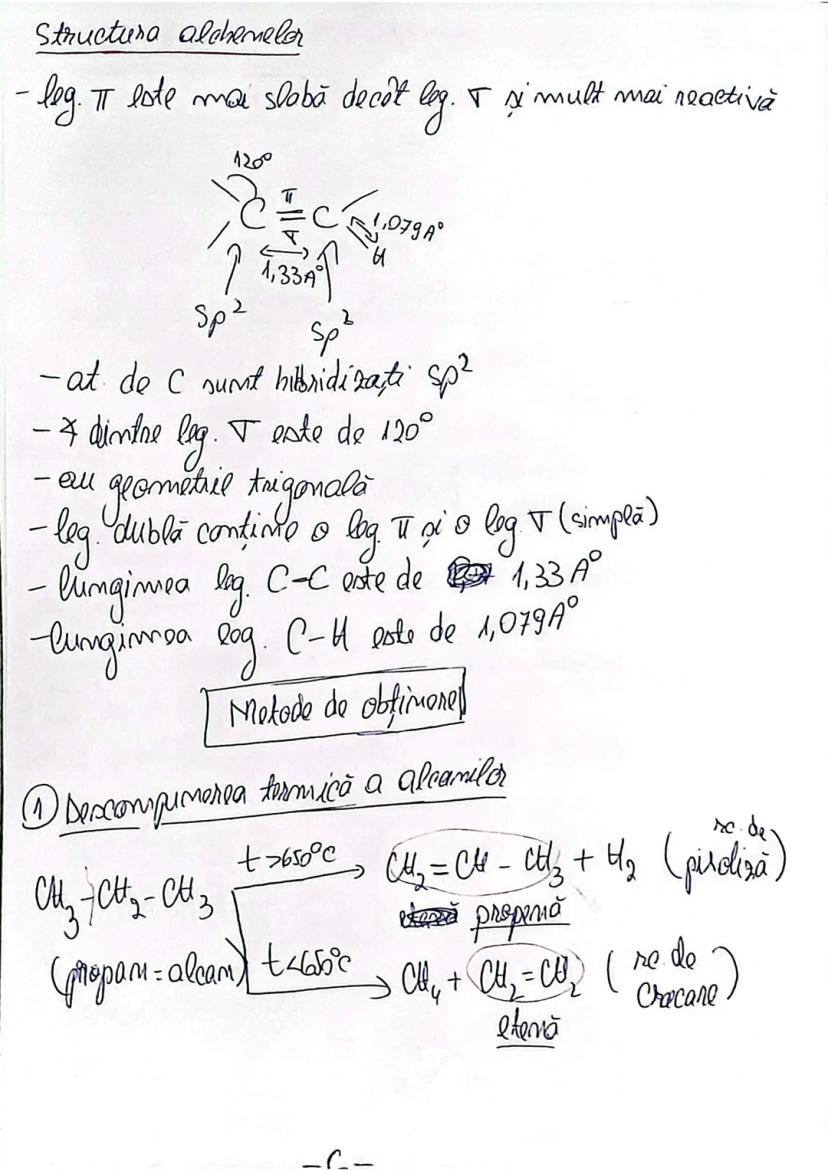 Structura alchenelor
- leg. π este mai slabă decât leg. σ și mult mai reactivă
120°
π
C = C
σ
1,079A°
H
1,33A°
Sp²
Sp²
- at. de C sunt hibridizați Sp²
- ∢ dintre leg. σ este de 120°
- au geometrie trigonală
- leg. dublă conține o leg. π și o leg. σ (simplă)
- lungimea leg. C-C este de 1,33 A°
- lungimea leg. C-H este de 1,079A°
Metode de obținere
① Descompunerea termică a alcanilor
CH₃-CH₂-CH₃
(propan = alcan)
t>650°C
CH₂ = CH - CH₃ + H₂ (rc. de piroliză)
propenă
t<650°C
CH₄ + CH₂ = CH₂ (rc. de cracare)
etenă